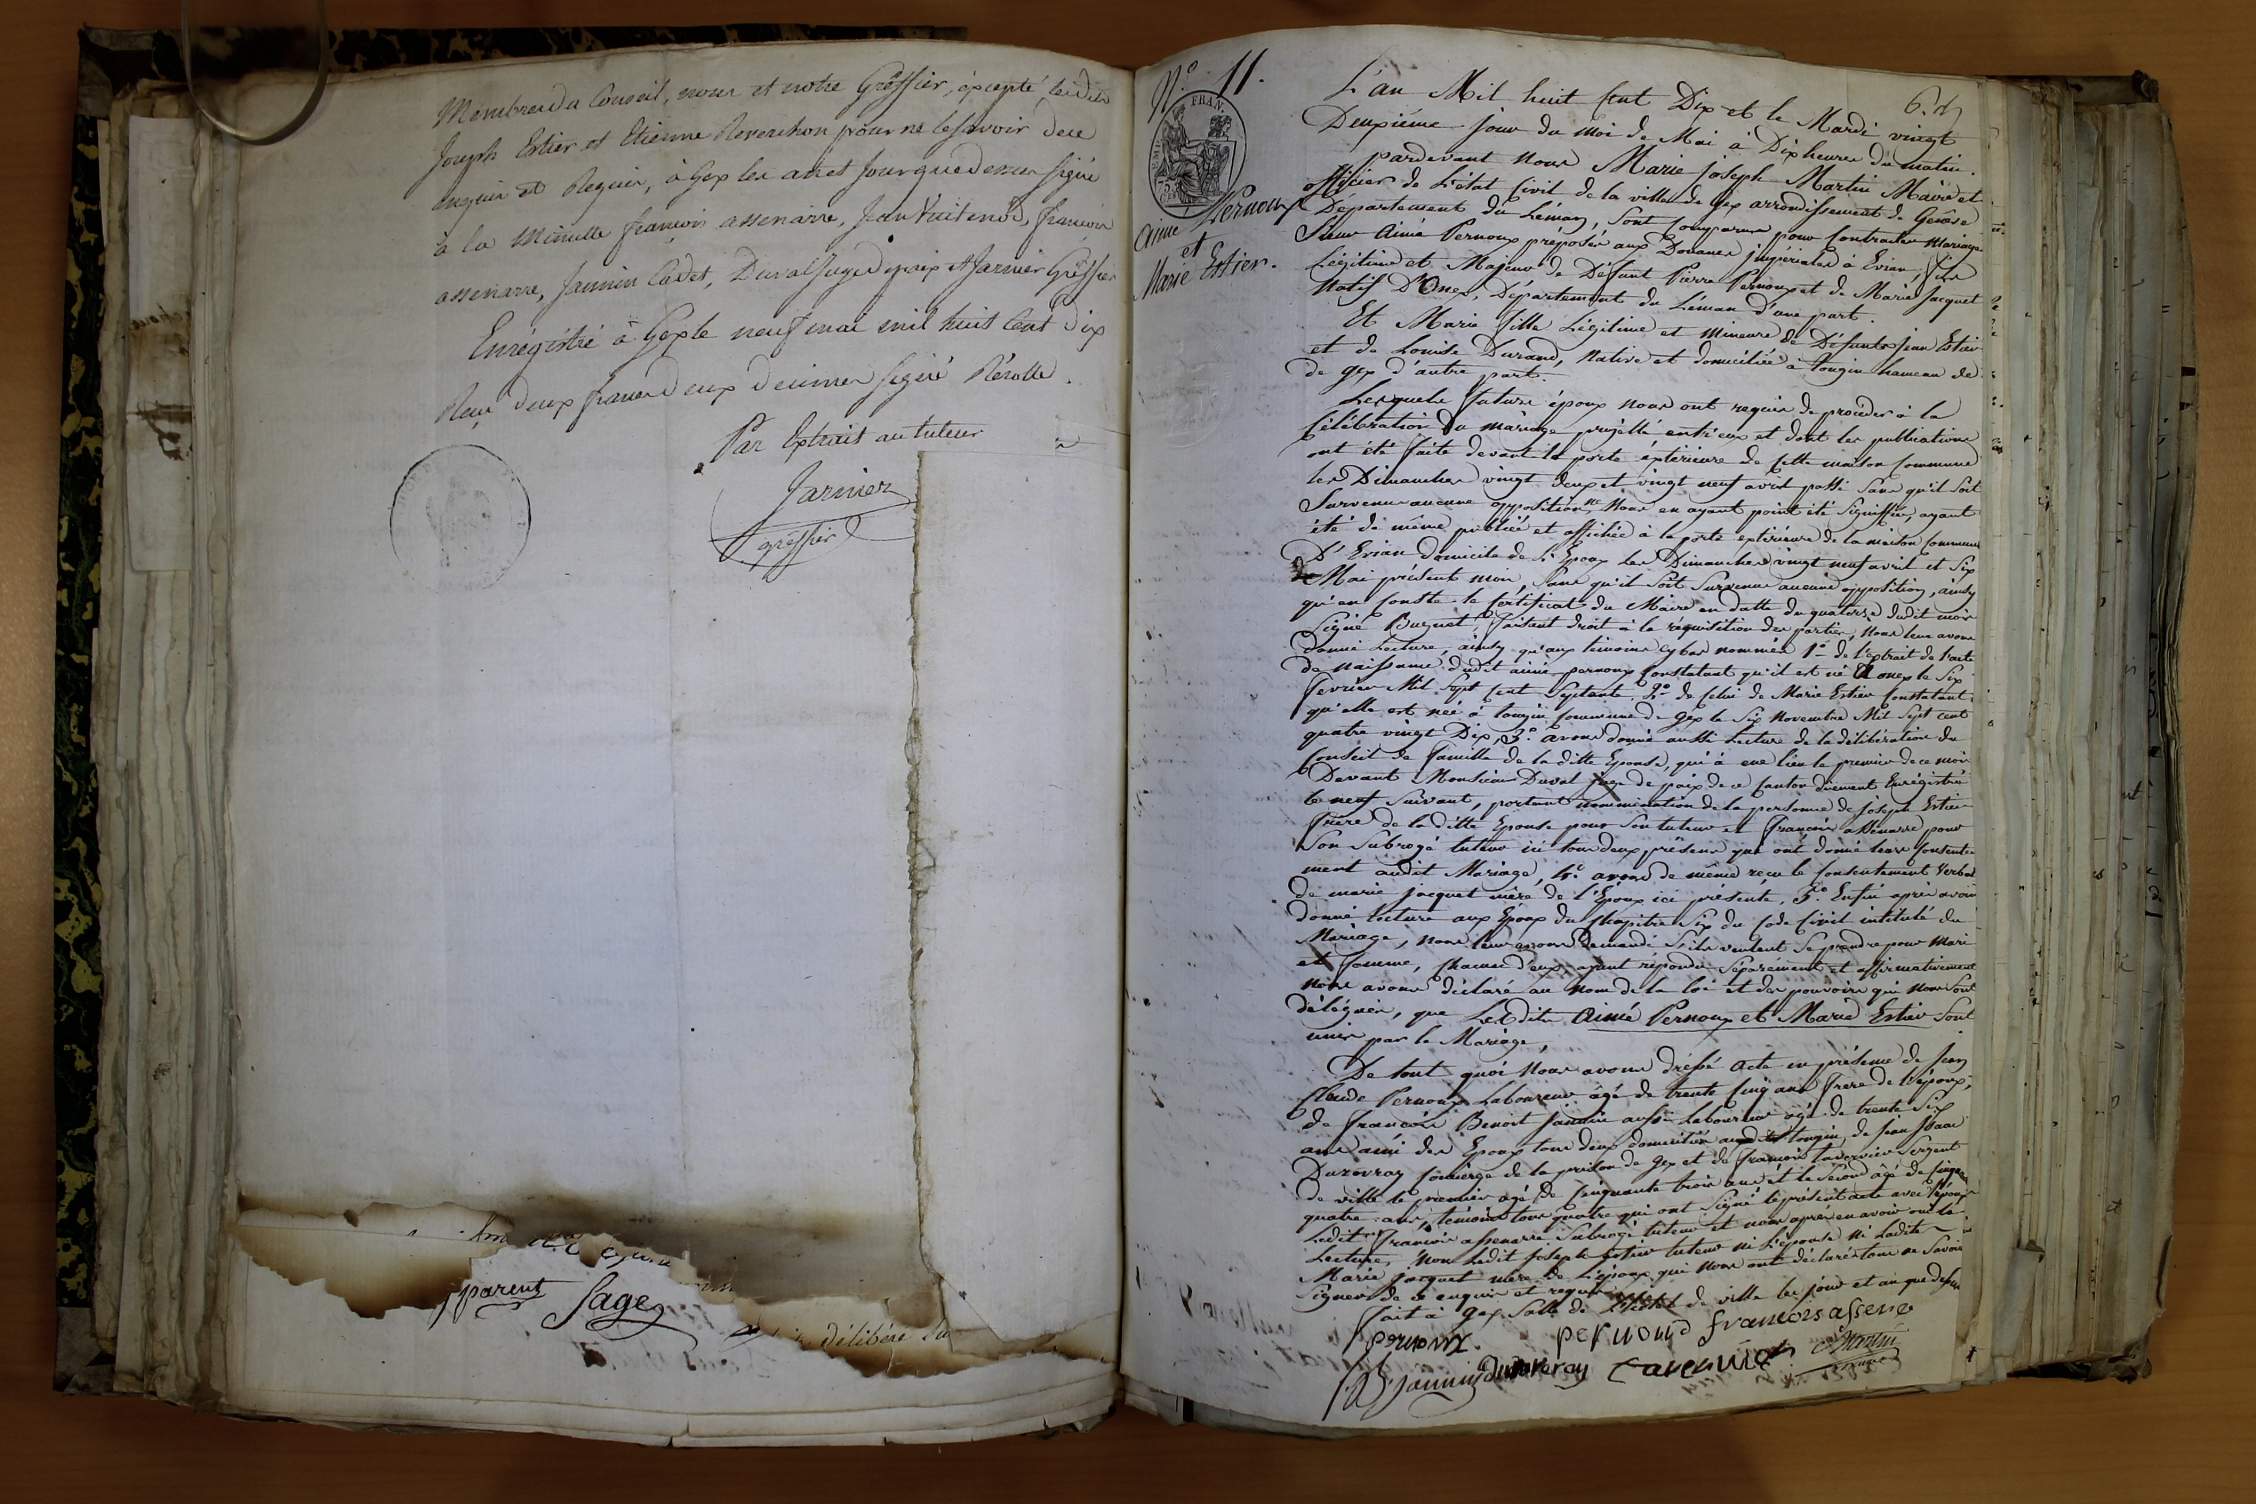 Membres du Conseil, nous et notre Greffier, éxcepté lesdits
Joseph Estier et Etienne Reverchon pour ne le savoir de ce
enquis et Requis, à Gex les an et jour que dessus signé
à la Minutte françois assenarre, Jean Vuitenot, françois
assenarre, Jannin Cadet, Duval Juge de paix et Jarnier Greffier
Enrégistré à Gex le neuf mai mil huit Cent dix
Reçu deux francs deux decimes signé Pérolle.
Par Extrait au tuteur
Jarnier
greffier
parents Sage
délibéré
N.º 11.
Aimé Pernoux
et
Marie Estier.
L'an Mil huit Cent Dix et le Mardi vingt
Deuxiéme jour du moi de Mai à Dix heures du matin.
pardevant Nous Marie joseph Martin Maire et
officier de L'état Civil de la ville de Gex arrondissement de Genève
Departement du Léman, sont Comparus pour Contracter Mariage
Sieur Aimé Pernoux préposé aux Douanes jmpériales à Evian, fils
Légitime et Majeur de Défunt Pierre Pernoux et de Marie Jacquet
Natif D'Onex, Département du Léman d'une part.
Et Marie fille Légitime et Mineure de Défunts jean Estier
et de Louise Durand, Native et domiciliée à tougin hameau de
de Gex d'autre part.
Lesquels futurs époux Nous ont requis de procéder à la
Célébration du mariage projetté entr'eux et dont les publications
ont été faite devant la porte éxtérieure de Cette maison Commune
les Dimanches vingt deux et vingt neuf avril passé sans qu'il soit
survenu aucune opposition, ne Nous en ayant point été signiffiée, ayant
été de même publiée et affichée à la porte extérieure de la maison Commune
D'Evian domicile de l'Epoux les Dimanches vingt neuf avril et Six
de Mai présent mois, sans qu'il soit survenu aucune opposition, ainsy
qu'en Conste le Certificat du Maire en datte du quatorze dudit mois
signé Buquet, faisant droit à la réquisition des parties, Nous leur avons
donné Lecture, ainsy qu'aux témoins cybas nommés 1º de l'extrait de l'acte
de naissance dudit aimé pernoux Constatant qu'il est né à onex le Six
fevrier Mil Sept Cent Septante, 2º de Celui de Marie Estier Constatant
qu'elle est née à tougin Commune de Gex le Six Novembre Mil Sept cent
quatre vingt Dix, 3º avons donné aussi Lecture de la délibération du
Conseil de famille de la ditte Epouse, qui à eue lieu le premier de ce mois
Devant Monsieur Duval juge de paix de ce Canton duement Enrégistré
le neuf Suivant, portant nommination de la personne de joseph Estier
frère de la ditte Epouse pour son tuteur et françois assenarre pour
Son Subrogé tuteur ici tous deux présens qui ont donné leur Consente
ment audit Mariage, 4º avons de même reçu le Consentement Verbal
de marie jacquet mère de l'Epoux ici présente, 5º Enfin après avoir
donné lecture aux Epoux du Chapitre Six du Code Civil intitulé du
Mariage, Nous leur avons demandé s'ils veulent se prendre pour Mari
et femme, Chacun d'eux ayant répondu séparément et affirmativement
Nous avons déclaré au Nom de la loi et des pouvoirs qui Nous sont
délégués, que Lesdits Aimé Pernoux et Marie Estier sont
unis par le Mariage,
De tout quoi Nous avons dréssé acte en présence de Jean
Claude Pernoux Laboureur âgé de trente Cinq ans frere de l'époux,
de françois Benoit Jannin aussi Laboureur âgé de trente Six
ans ami des Epoux tous deux domiciliés audit tougin, de jean Isaac
Duzovray Concierge de la prison de Gex et de françois tavernier Sergent
de ville le premier âgé de Cinquante trois ans et le second âgé de Cinquante
quatre ans, témoins tous quatre qui ont signé le présent acte avec l'époux
Ledit françois assenarre Subrogé tuteur et nous après en avoir oui la
Lecture, Non Ledit Joseph Estier tuteur ni l'épouse ni Ladite
Marie Jacquet mère de l'époux qui Nous ont déclaré tous ne Savoir
Signer de ce enquis et requis
fait à Gex Salle de L'hotel de ville les jour et an que dessus
pernoux. pernoud françois assene
B. Jannin Duzovray tavernier Martin